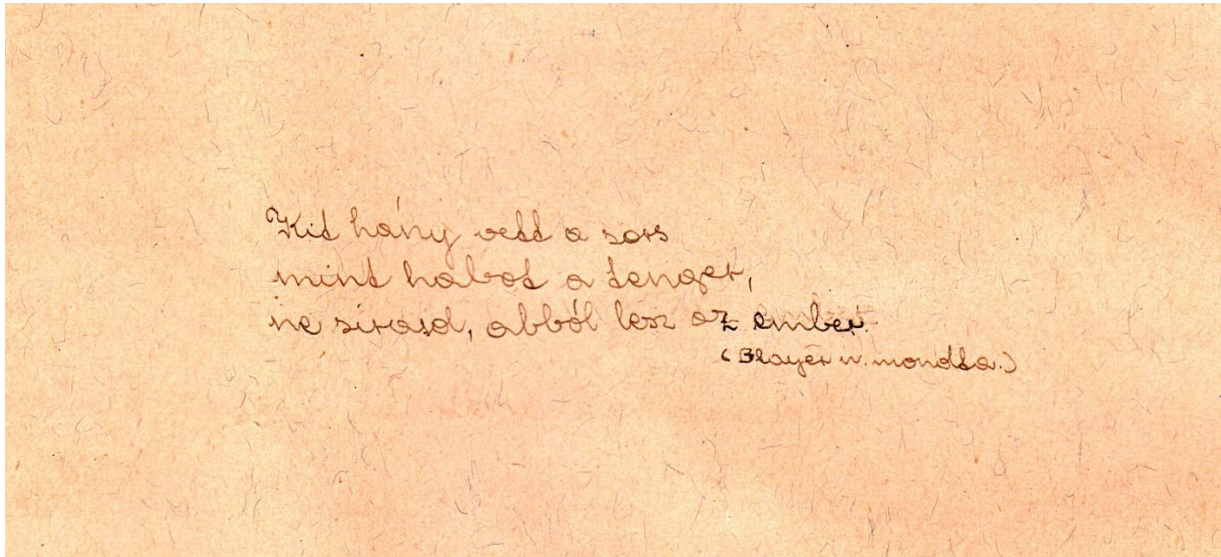 Kit hány vett a sors
mint habot a tenger,
ne sirasd, abból lesz az ember.
(Blayer n. mondta.)